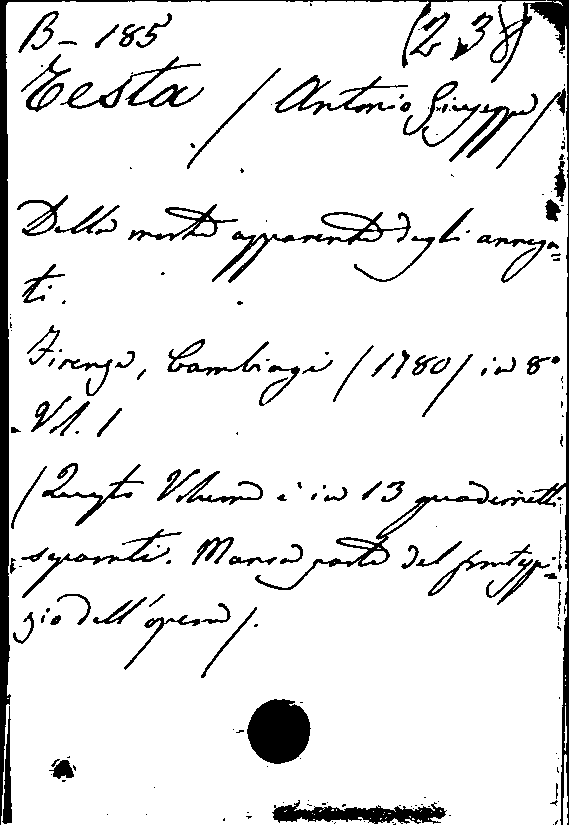 B- 185 (2,38)
Testa / Antonio Giuseppe /
Della morte apparente degli annega=
ti.
Firenze, Cambiagi / 1780 / in 8º
Vol. 1
/ Questo Volume è in 13 quadernetti
separati. Manca parte del frontespi=
zio dell'opera /.